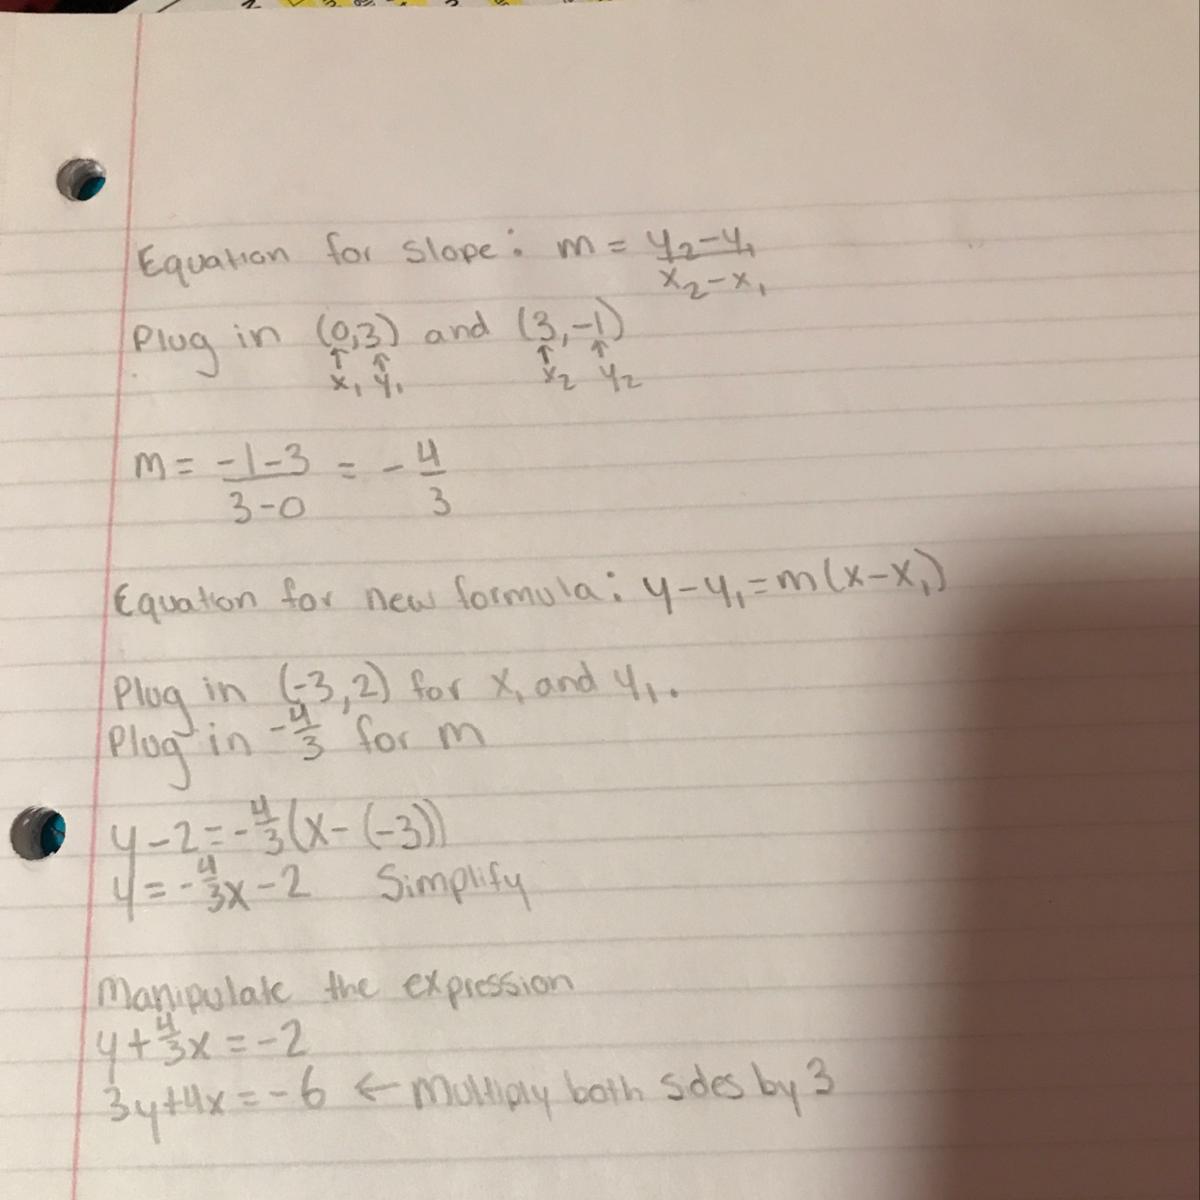 Equation for slope: m = y₂-y₁/x₂-x₁
Plug in (0,3) and (3,-1)
↑ ↑ ↑ ↑
x₁ y₁ x₂ y₂
m = -1-3/3-0 = -4/3
Equation for new formula: y-y₁=m(x-x₁)
Plug in (-3,2) for x₁ and y₁.
Plug in -4/3 for m
y-2=-4/3(x-(-3))
y=-4/3x-2 Simplify
Manipulate the expression
y+4/3x=-2
3y+4x=-6 ← Multiply both sides by 3